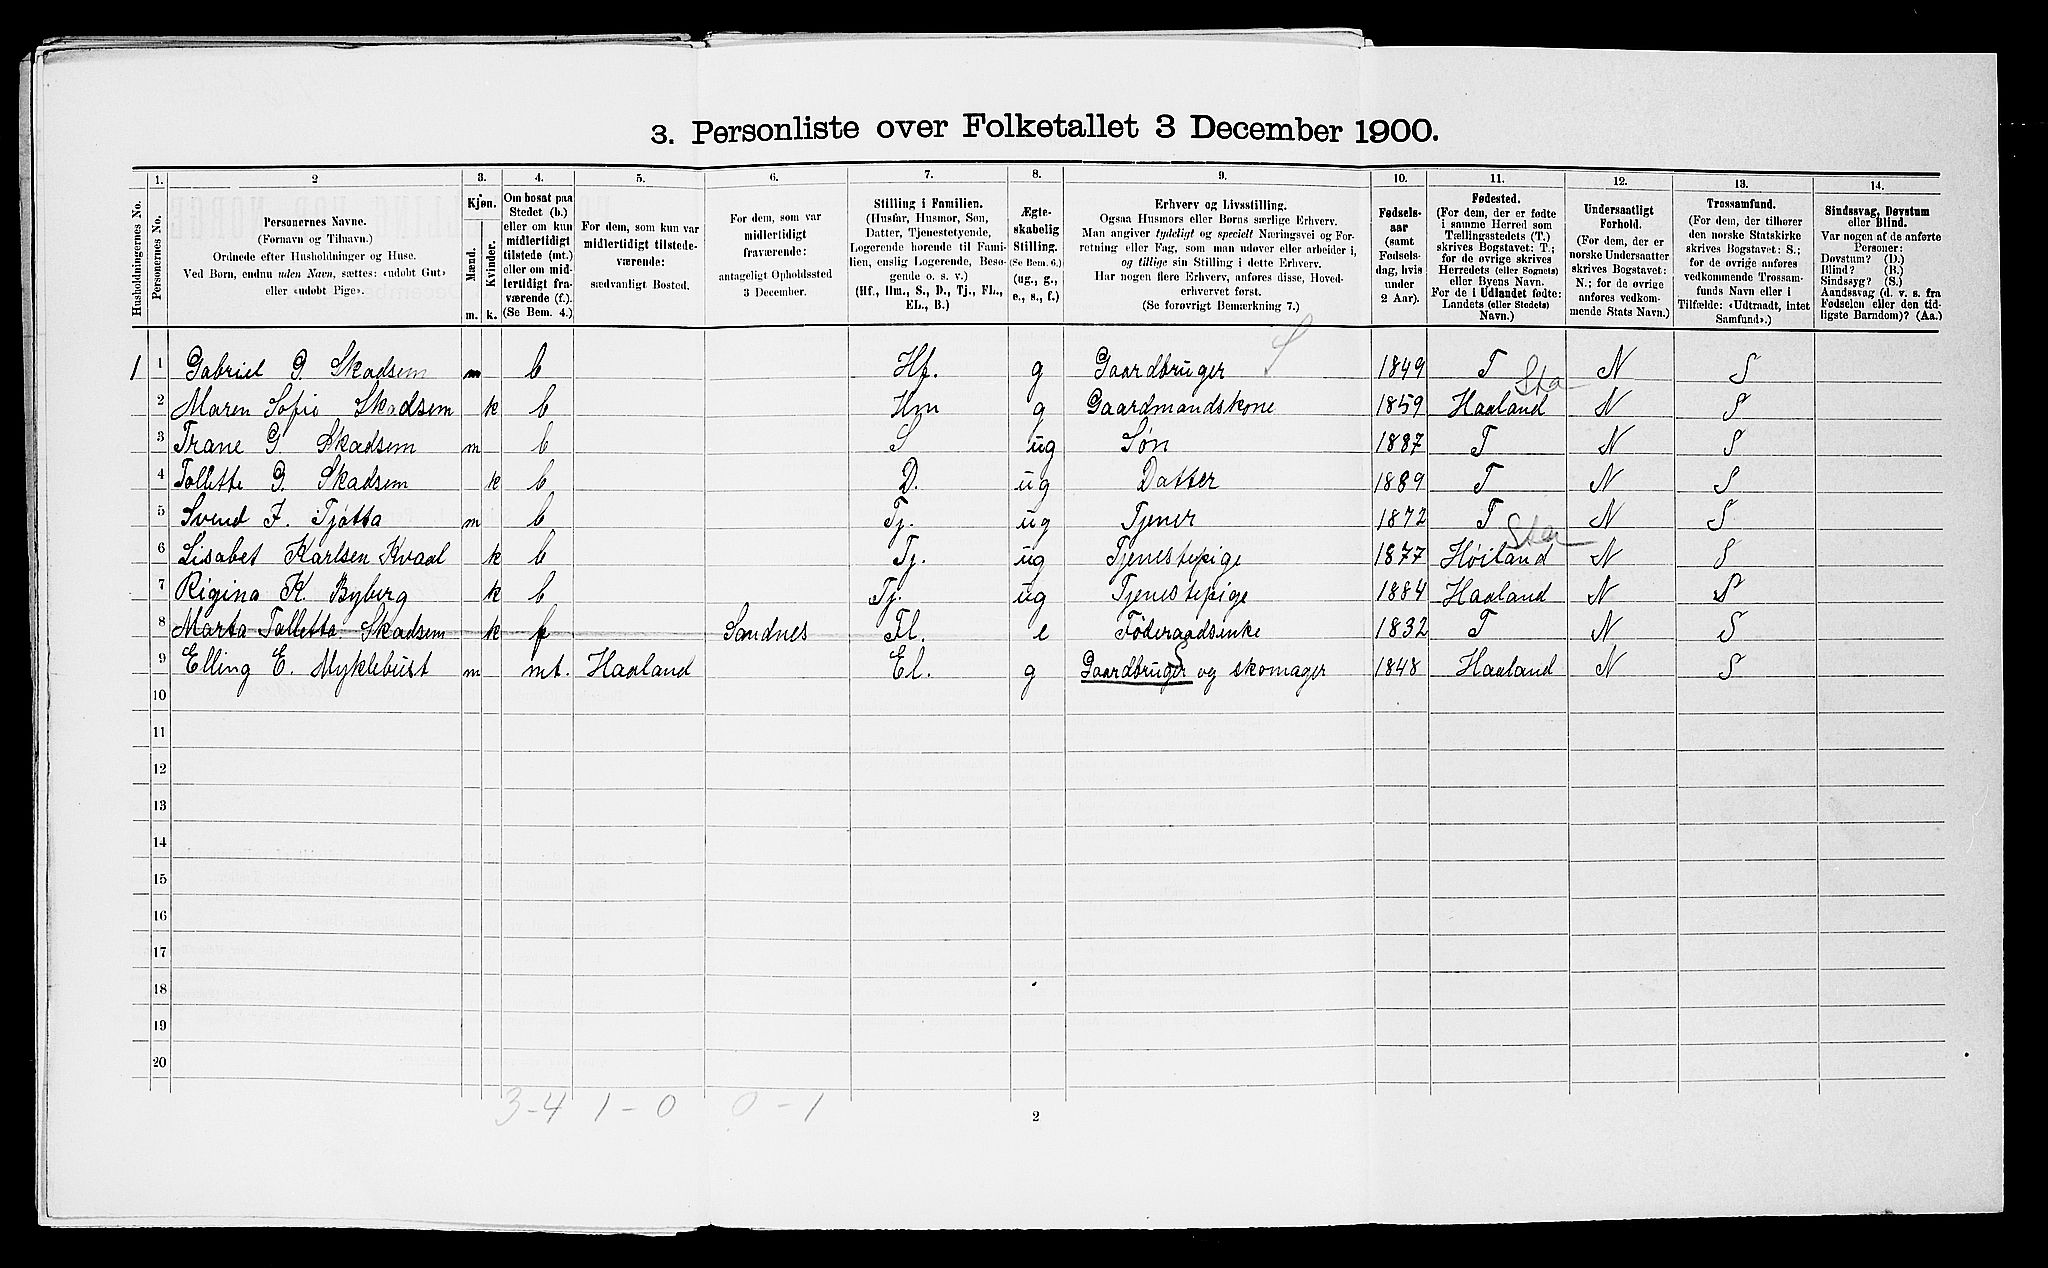 3. Personliste over Folketallet 3 December 1900.
1. 2 3. 4. 5. 6. 7. 8. 9. 10. 11. 12. 13. 14.
Husholdningernes No.
Personernes No.
Personernes Navne.
(Fornavn og Tilnavn.)
Ordnede efter Husholdninger og Huse.
Ved Børn, endnu uden Navn, sættes: «udøbt Gut»
eller «udøbt Pige».
Kjøn.
Mænd.
Kvinder.
m. k.
Om bosat paa
Stedet (b.)
eller om kun
midlertidigt
tilstede (mt.)
eller om mid-
lertidigt fra-
værende (f.).
(Se Bem. 4.)
For dem, som kun var
midlertidigt tilstede-
værende:
sædvanligt Bosted.
For dem, som var
midlertidigt
fraværende:
antageligt Opholdssted
3 December.
Stilling i Familien.
(Husfar, Husmor, Søn,
Datter, Tjenestetyende,
Logerende hørende til Fami-
lien, enslig Logerende, Besø-
gende o. s. v.)
(Hf., Hm., S., D., Tj., FL.,
EL., B.)
Ægte-
skabelig
Stilling.
(Se Bem. 6.)
(ug., g.,
e., s., f.)
Erhverv og Livsstilling.
Ogsaa Husmors eller Børns særlige Erhverv.
Man angiver tydeligt og specielt Næringsvei og For-
retning eller Fag, som man udøver eller arbeider i,
og tillige sin Stilling i dette Erhverv.
Har nogen flere Erhverv, anføres disse, Hoved-
erhvervet først.
(Se forøvrigt Bemærkning 7.)
Fødsels-
aar
(samt
Fødsels-
dag, hvis
under
2 Aar).
Fødested.
(For dem, der er fødte
i samme Herred som
Tællingsstedets (T.)
skrives Bogstavet: T.;
for de øvrige skrives
Herredets (eller Sognets)
eller Byens Navn.
For de i Udlandet fødte:
Landets (eller Stedets)
Navn.)
Undersaatligt
Forhold.
(For dem, der er
norske Undersaatter
skrives Bogstavet:
N.; for de øvrige
anføres vedkom-
mende Stats Navn.)
Trossamfund.
(For dem, der tilhører
den norske Statskirke
skrives Bogstavet: S.;
for de øvrige anføres
vedkommende Trossam-
funds Navn eller i
Tilfælde: «Udtraadt, intet
Samfund».)
Sindssvag, Døvstum
eller Blind.
Var nogen af de anførte
Personer:
Døvstum? (D.)
Blind? (B.)
Sindssyg? (S.)
Aandssvag (d. v. s. fra
Fødselen eller den tid-
ligste Barndom)? (Aa.)
1 1 Gabriel G. Skadsem m b Hf. g Gaardbruger S 1849 T N S
Sta
2 Maren Sofie Skadsem k b Hm g Gaardmandskone 1859 Haaland N S
3 Trane G Skadsem m b S ug Søn 1887 T N S
4 Tollette G. Skadsem k b D. ug Datter 1889 T N S
5 Svend F. Tjøtta m b Tj. ug Tjener 1872 T N S
6 Lisabet Karlsen Kvaal k b Tj. ug Tjenestepige 1877 Høiland N S
7 Rigina K. Byberg k b Tj. ug Tjenestepige 1884 Haaland N S
8 Marta Talletta Skadsem k f Sandnes Fl. e Føderaadsenke 1832 T N S
9 Elling E. Myklebust m mt. Haaland El. g Gaardbruger og skomager 1848 Haaland N S
10
11
12
13
14
15
16
17
18
19
20
3-4 1-0 0-1
2